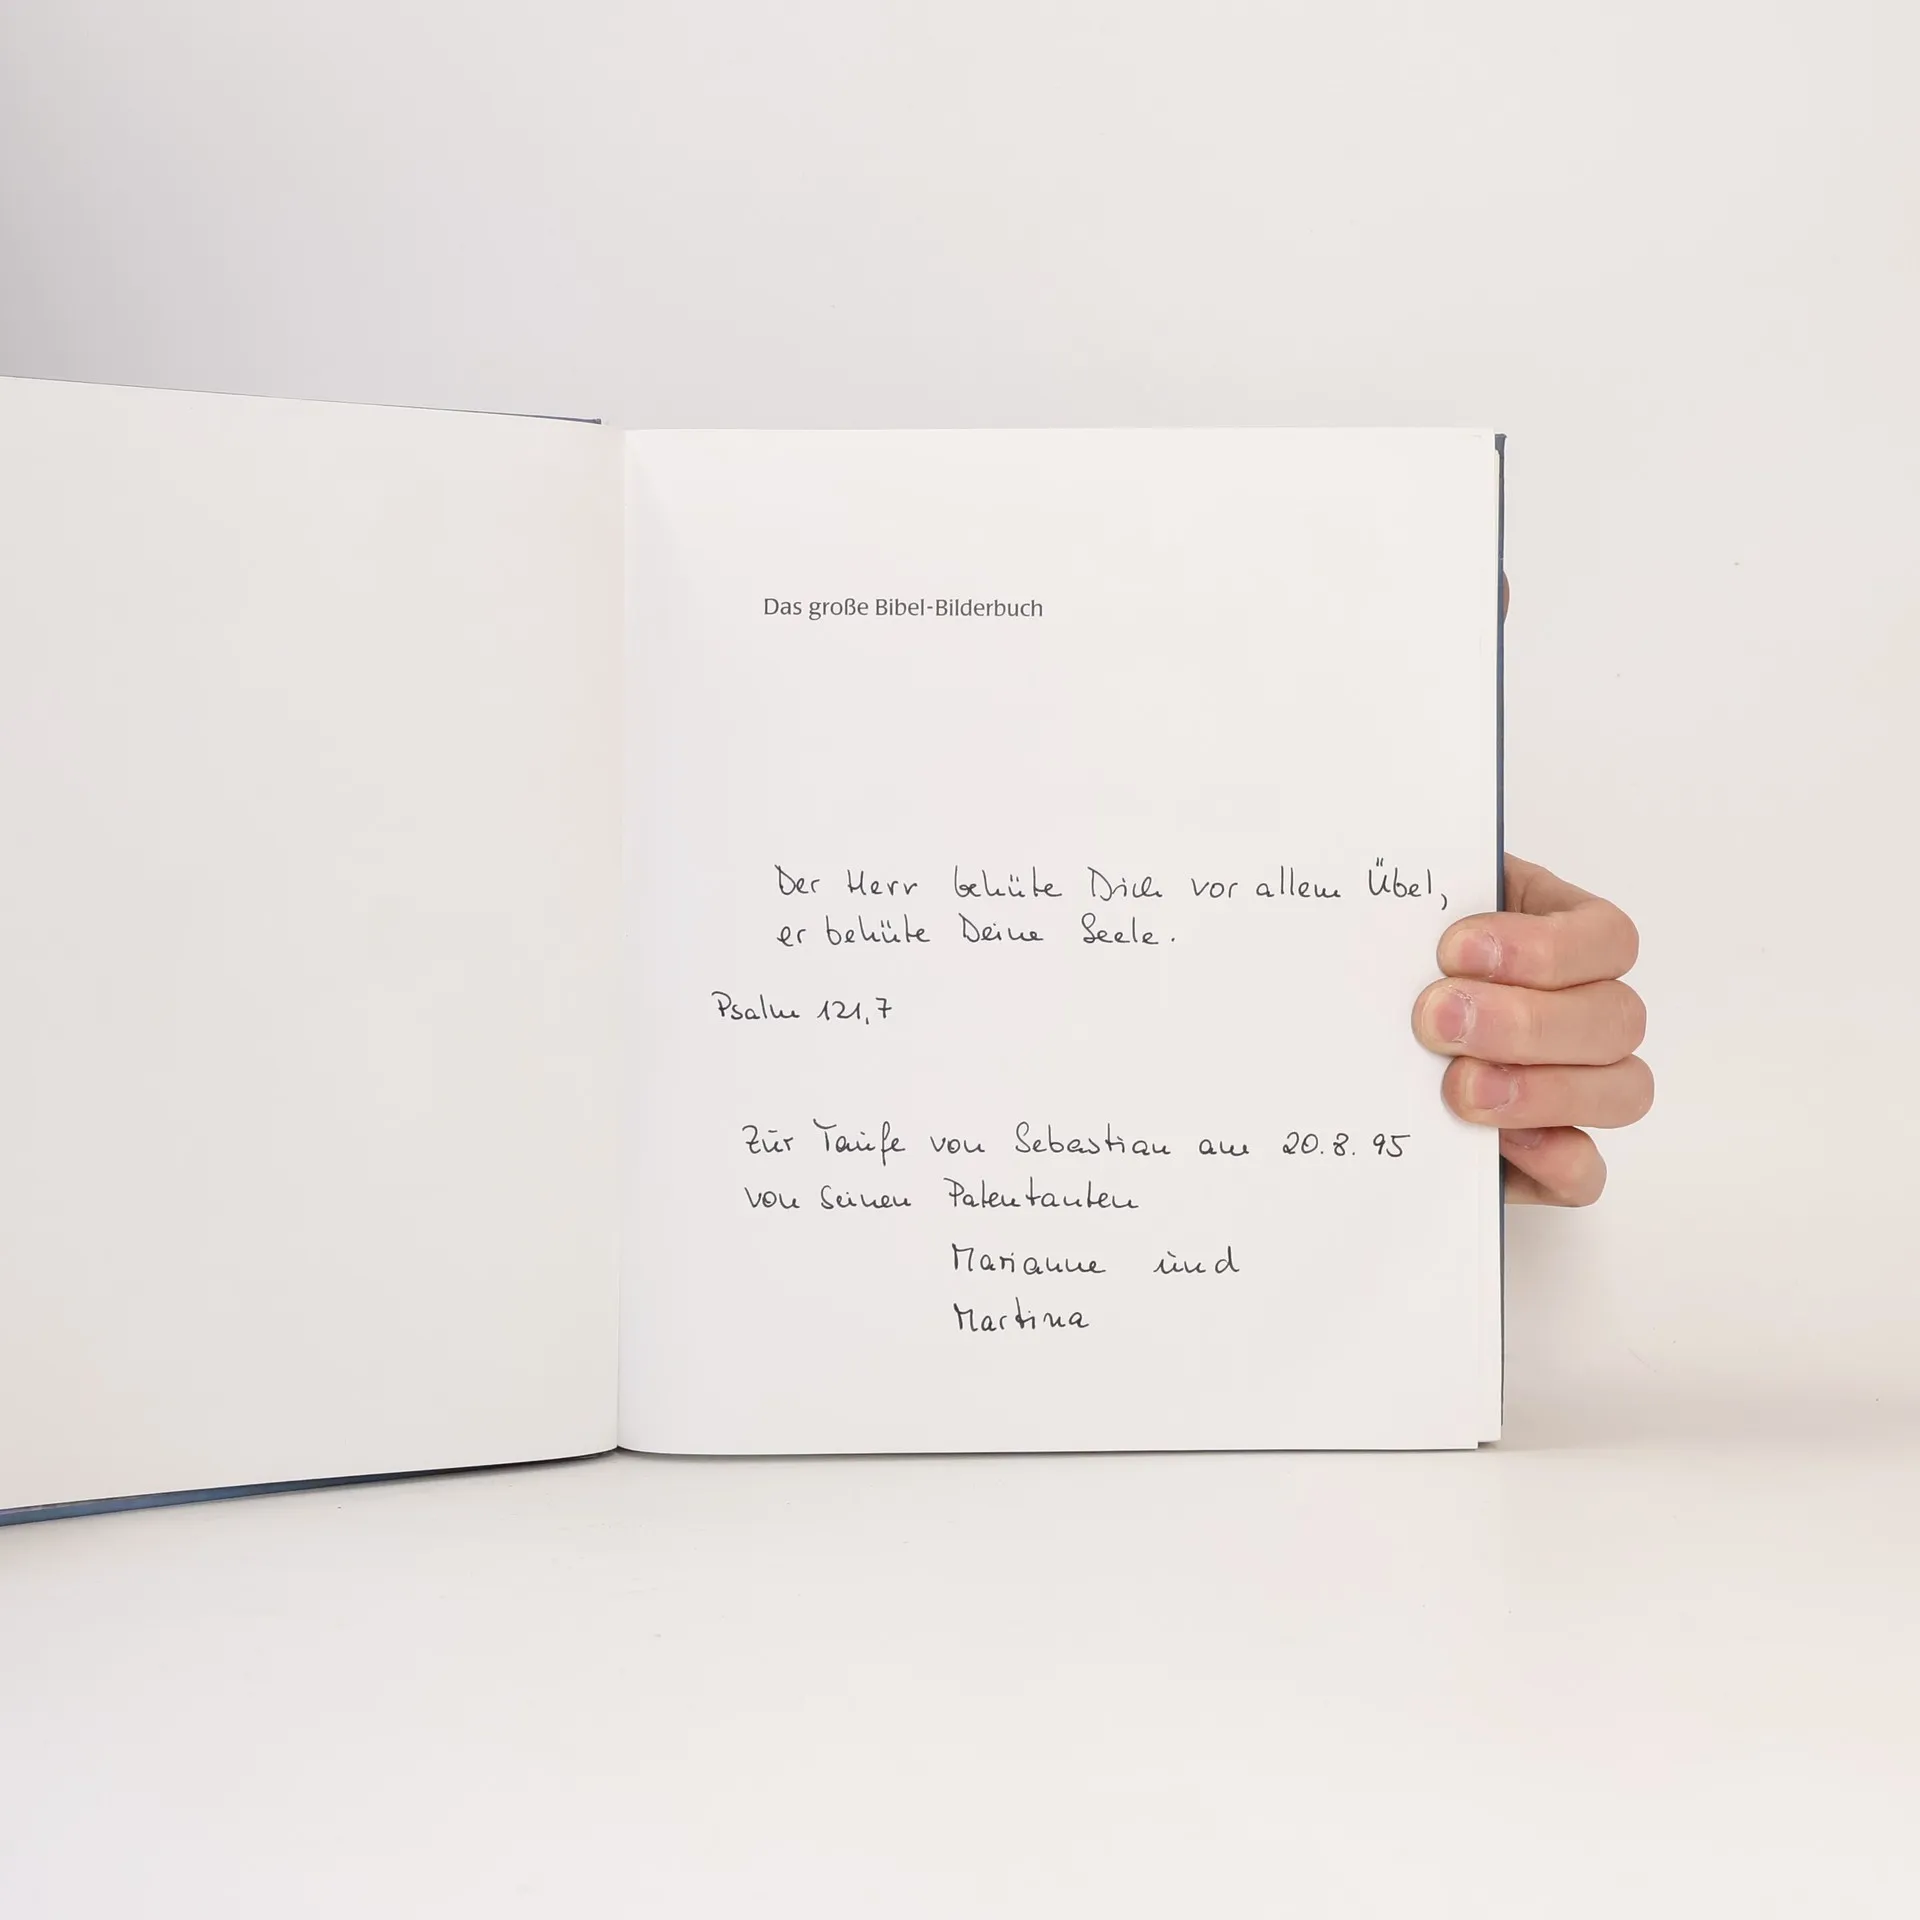 Das große Bibel-Bilderbuch
Der Herr behüte Dich vor allem Übel,
er behüte Deine Seele.
Psalm 121,7
Zur Taufe von Sebastian am 20.8.95
von seinen Patentanten
Marianne und
Martina